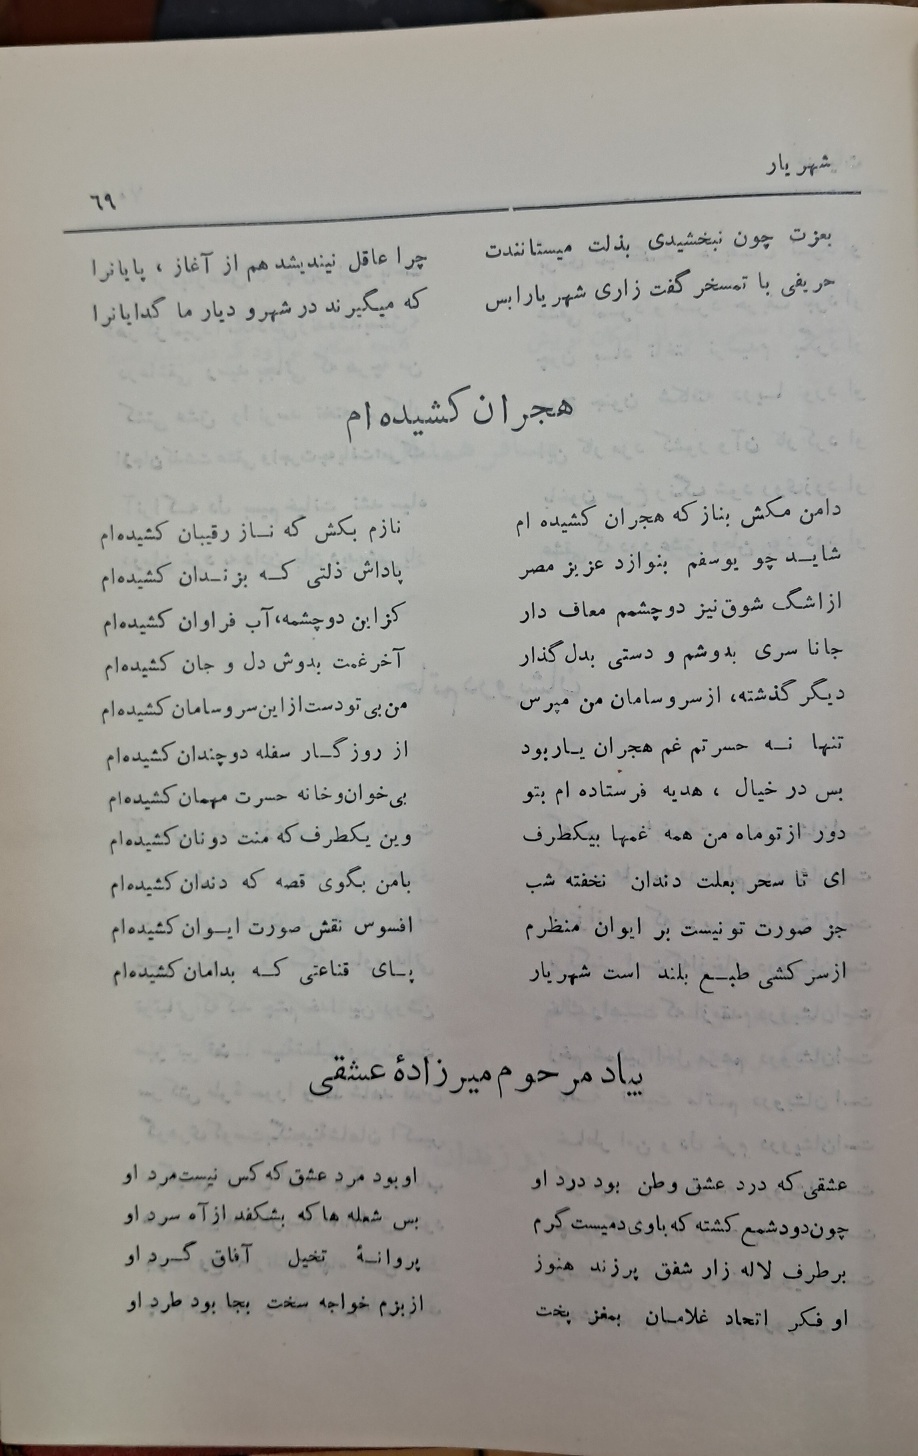 شهریار
٦٩
بعزت چون نبخشیدی بذلت میستانندت چرا عاقل نیندیشد هم از آغاز ، پایانرا
حریفی با تمسخر گفت زاری شهریارا بس که میگیرند در شهر و دیار ما گدایانرا
هجران کشیده ام
دامن مکش بناز که هجران کشیده ام نازم بکش که نــاز رقیبان کشیده‌ام
شایــد چو یوسفم بنوازد عزیز مصر پاداش ذلتی کــه بزنــدان کشیده‌ام
از اشگ شوق نیز دوچشمم معاف دار کزاین دوچشمه، آب فراوان کشیده‌ام
جانا سری بدوشم و دستی بدل گذار آخر غمت بدوش دل و جان کشیده‌ام
دیگر گذشته، از سر و سامان من مپرس من بی تو دست از این سر و سامان کشیده‌ام
تنها نــه حسرتم غم هجران یــار بود از روزگــار سفله دوچندان کشیده‌ام
بس در خیال ، هدیه فرستاده ام بتو بی خوان و خانه حسرت مهمان کشیده‌ام
دور از تو ماه من همه غمها بیکطرف وین یکطرف که منت دونان کشیده‌ام
ای تا سحر بعلت دندان نخفته شب بامن بگوی قصه که دندان کشیده‌ام
جز صورت تو نیست بر ایوان منظرم افسوس نقش صورت ایــوان کشیده‌ام
از سرکشی طبــع بلند است شهریار پــای قناعتی کــه بدامان کشیده‌ام
بیاد مرحوم میرزادهٔ عشقی
عشقی که درد عشق وطن بود درد او او بود مرد عشق که کس نیست مرد او
چون دود شمع کشته که باوی دمیست گرم بس شعله ها که بشکفد از آه سرد او
بر طرف لاله زار شفق پر زند هنوز پروانــهٔ تخیل آفاق گــرد او
او فکر اتحاد غلامــان بمغز پخت از بزم خواجه سخت بجا بود طرد او